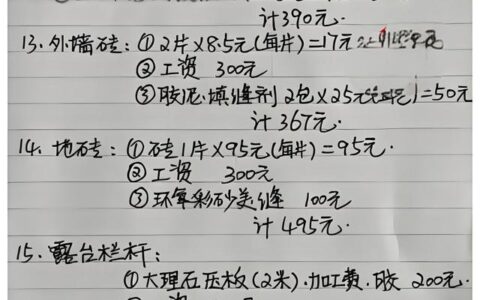 计390元.
13. 外墙砖: ①2片×8.5元(每片)=17元
②工资 300元
③胶泥.填缝剂 2包×25元 =50元
计367元.
14. 地砖: ①砖1片×95元(每片)=95元.
②工资 300元
③环氧彩砂美缝 100元
计495元.
15. 露台栏杆:
①大理石压板(2米).加工费.胶 200元.